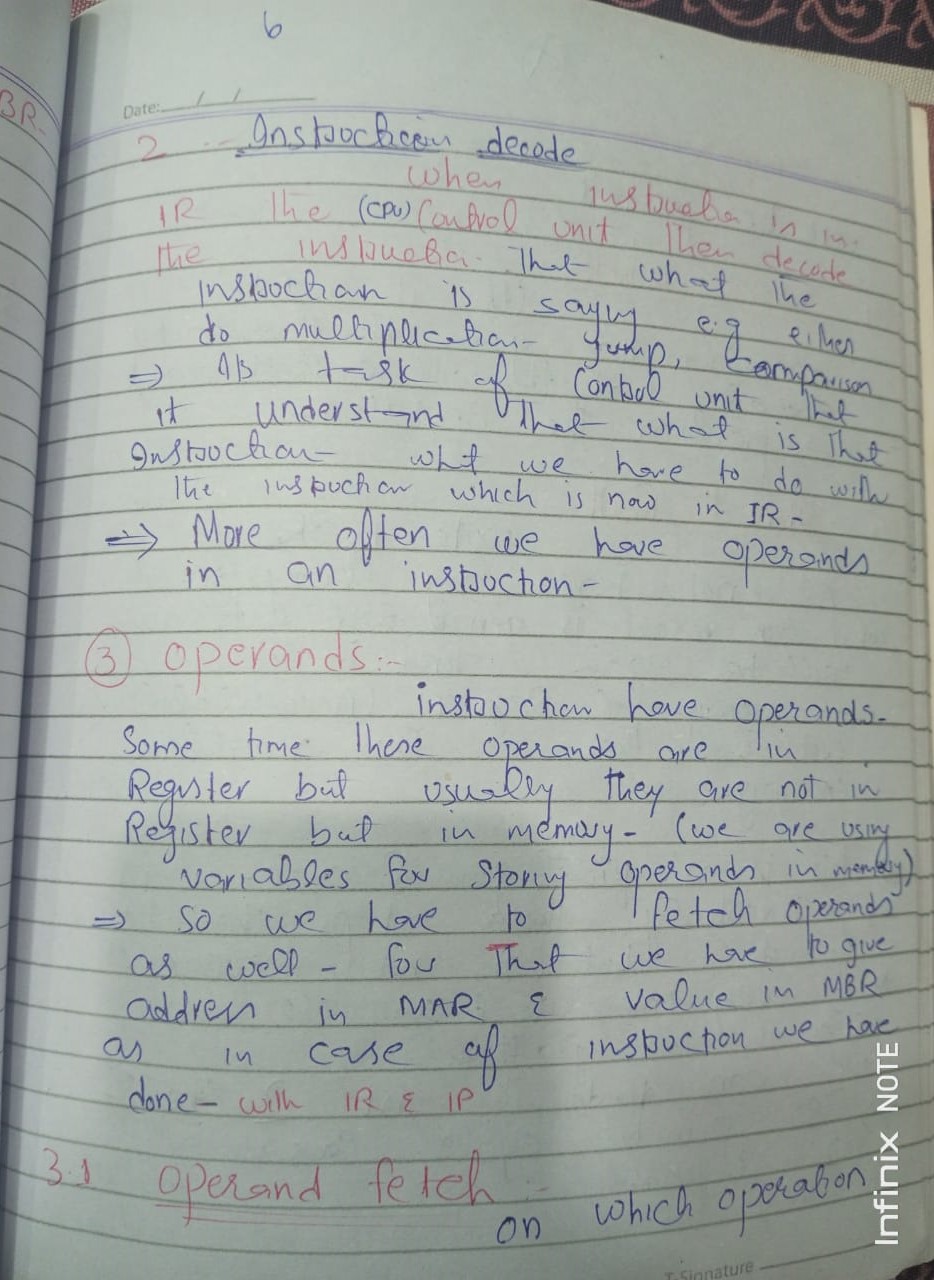 6
BR-
Date: / /
2 Instruction decode
when instruction is in
IR the (CPU) Control unit then decode
the instruction. That what the
instruction is saying e.g either
do multiplication- Jump, Comparison
⇒ Its task of Control unit that
it understand that what is that
Instruction- what we have to do with
the instruction which is now in IR-
⇒ More often we have operands
in an instruction-
③ Operands:-
instruction have operands-
Some time these operands are in
Register but usually they are not in
Register but in memory- (we are using
variables for storing operands in memory)
⇒ So we have to fetch operands
as well- for that we have to give
address in MAR & value in MBR
as in case of instruction we have
done- with IR & IP
3.1 Operand fetch :-
on which operation
Signature
Infinix NOTE